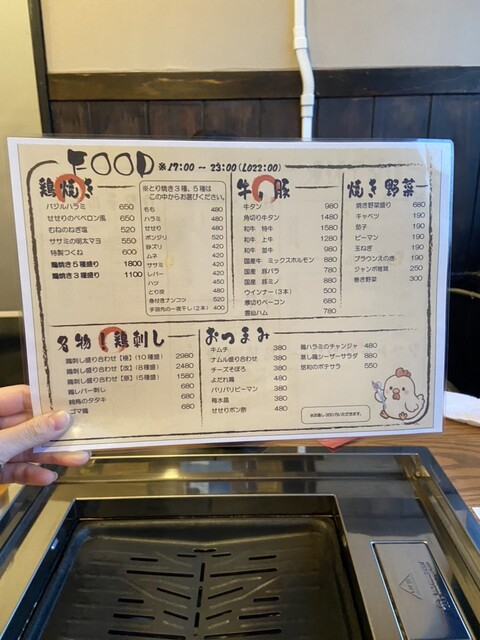 FOOD ※17:00 ～ 23:00(LO22:00)
鶏焼き
バジルハラミ 650
せせりのペペロン風 650
むねのねぎ塩 520
ササミの明太マヨ 550
特製つくね 600
鶏焼き5種盛り 1800
鶏焼き3種盛り 1100
※とり焼き3種、5種は
この中からお選びください。
もも 480
ハラミ 480
せせり 480
ボンジリ 520
砂ズリ 420
ムネ 420
ササミ 420
レバー 420
ハツ 450
とり皮 480
身付きナンコツ 520
手羽先の一夜干し(2本) 400
牛、豚
牛タン 980
角切り牛タン 1480
和牛 特牛 1580
和牛 上牛 1280
和牛 並牛 980
国産牛 ミックスホルモン 880
国産 豚バラ 780
国産 豚ミノ 880
ウインナー(3本) 500
厚切りベーコン 680
雲仙ハム 780
焼き野菜
焼き野菜盛り 680
キャベツ 190
茄子 190
ピーマン 190
玉ねぎ 190
ブラウンえのき 190
ジャンボ椎茸 250
巻き野菜 300
名物!鶏刺し
鶏刺し盛り合わせ (10種盛) 2980
鶏刺し盛り合わせ (8種盛) 2480
鶏刺し盛り合わせ (5種盛) 1580
鶏レバー刺し 680
親鳥のタタキ 680
ゴマ鶏 680
おつまみ
キムチ 380
ナムル盛り合わせ 380
チーズそぼろ 380
よだれ鶏 480
パリパリピーマン 380
梅水晶 380
せせりポン酢 480
鶏ハラミのチャンジャ 480
蒸し鶏シーザーサラダ 880
悠和のポテサラ 550